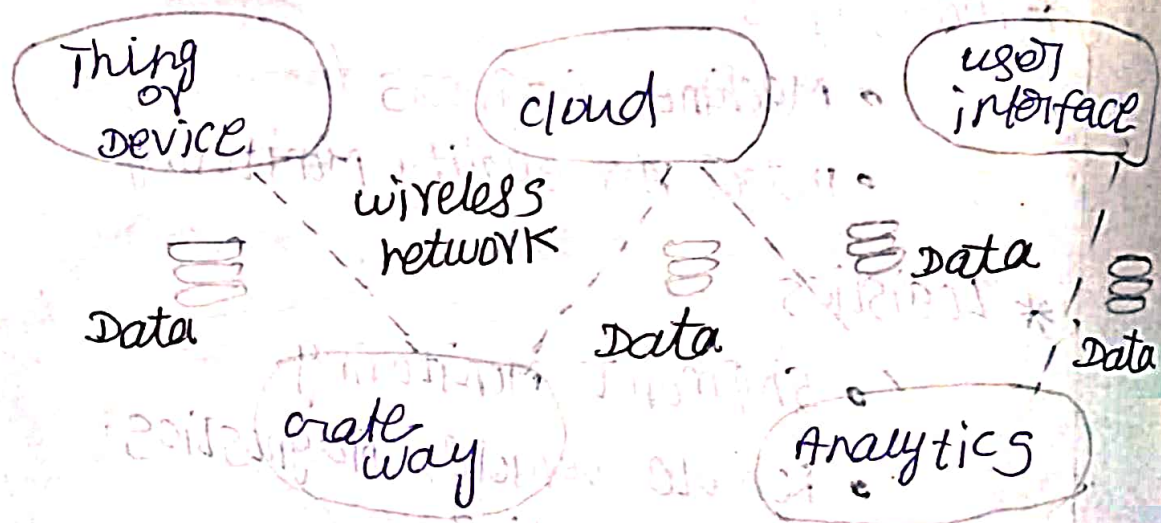 Thing
or
Device
cloud
user
interface
wireless
network
Data
Data
Data
Data
Gateway
Analytics